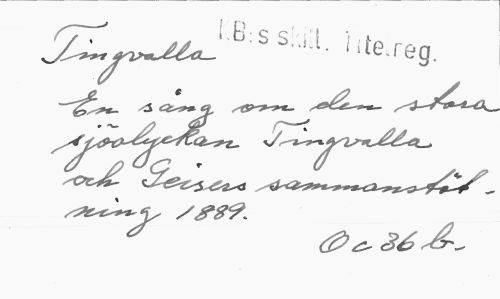 Tingvalla
KB:s skill. litt.reg.
En sång om den stora
sjöolyckan Tingvalla
och Geisers sammanstöt-
ning 1889.
Oc 36 b.